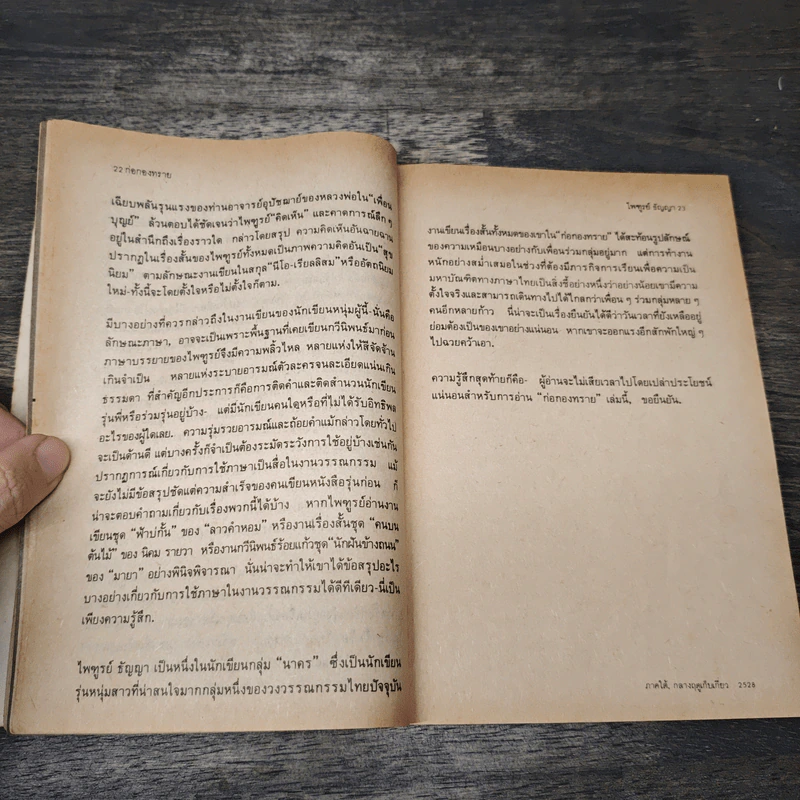 22 ก่อกองทราย
เฉียบพลันรุนแรงของท่านอาจารย์อุปัชฌาย์ของหลวงพ่อใน“เพื่อน
บุญย์” ล้วนตอบได้ชัดเจนว่าไพฑูรย์“คิดเห็น” และคาดการณ์ลึก ๆ
อยู่ในสำนึกถึงเรื่องราวใด กล่าวโดยสรุป ความคิดเห็นอันฉายฉาน
ปรากฏในเรื่องสั้นของไพฑูรย์ทั้งหมดเป็นภาพความคิดอันเป็น“สุข
นิยม” ตามลักษณะงานเขียนในสกุล“นีโอ-เรียลลิสม”หรืออัตถนิยม
ใหม่-ทั้งนี้จะโดยตั้งใจหรือไม่ตั้งใจก็ตาม.
มีบางอย่างที่ควรกล่าวถึงในงานเขียนของนักเขียนหนุ่มผู้นี้-นั่นคือ
ลักษณะภาษา, อาจจะเป็นเพราะพื้นฐานที่เคยเขียนกวีนิพนธ์มาก่อน
ภาษาบรรยายของไพฑูรย์จึงมีความพลิ้วไหล หลายแห่งให้สีจัดจ้าน
เกินจำเป็น หลายแห่งระบายอารมณ์ตัวละครจนละเอียดแน่นเกิน
ธรรมดา ที่สำคัญอีกประการก็คือการติดคำและติดสำนวนนักเขียน
รุ่นพี่หรือร่วมรุ่นอยู่บ้าง- แต่มีนักเขียนคนใดหรือที่ไม่ได้รับอิทธิพล
อะไรของผู้ใดเลย. ความรุ่มรวยอารมณ์และถ้อยคำแม้กล่าวโดยทั่วไป
จะเป็นด้านดี แต่บางครั้งก็จำเป็นต้องระมัดระวังการใช้อยู่บ้างเช่นกัน
ปรากฏการณ์เกี่ยวกับการใช้ภาษาเป็นสื่อในงานวรรณกรรม แม้
จะยังไม่มีข้อสรุปชัดแต่ความสำเร็จของคนเขียนหนังสือรุ่นก่อน ก็
น่าจะตอบคำถามเกี่ยวกับเรื่องพวกนี้ได้บ้าง หากไพฑูรย์อ่านงาน
เขียนชุด “ฟ้าบ่กั้น” ของ “ลาวคำหอม” หรืองานเรื่องสั้นชุด “คนบน
ต้นไม้” ของ นิคม รายวา หรืองานกวีนิพนธ์ร้อยแก้วชุด“นักฝันข้างถนน”
ของ “มายา” อย่างพินิจพิจารณา นั่นน่าจะทำให้เขาได้ข้อสรุปอะไร
บางอย่างเกี่ยวกับการใช้ภาษาในงานวรรณกรรมได้ดีทีเดียว-นี่เป็น
เพียงความรู้สึก.
ไพฑูรย์ ธัญญา เป็นหนึ่งในนักเขียนกลุ่ม “นาคร” ซึ่งเป็นนักเขียน
รุ่นหนุ่มสาวที่น่าสนใจมากกลุ่มหนึ่งของวงวรรณกรรมไทยปัจจุบัน
ไพฑูรย์ ธัญญา 23
งานเขียนเรื่องสั้นทั้งหมดของเขาใน“ก่อกองทราย” ได้สะท้อนรูปลักษณ์
ของความเหมือนบางอย่างกับเพื่อนร่วมกลุ่มอยู่มาก แต่การทำงาน
หนักอย่างสม่ำเสมอในช่วงที่ต้องมีภารกิจการเรียนเพื่อความเป็น
มหาบัณฑิตทางภาษาไทยเป็นสิ่งชี้อย่างหนึ่งว่าอย่างน้อยเขามีความ
ตั้งใจจริงและสามารถเดินทางไปได้ไกลกว่าเพื่อน ๆ ร่วมกลุ่มหลาย ๆ
คนอีกหลายก้าว นี่น่าจะเป็นเรื่องยืนยันได้ดีว่าวันเวลาที่ยังเหลืออยู่
ย่อมต้องเป็นของเขาอย่างแน่นอน หากเขาจะออกแรงอีกสักพักใหญ่ ๆ
ไปฉวยคว้าเอา.
ความรู้สึกสุดท้ายก็คือ- ผู้อ่านจะไม่เสียเวลาไปโดยเปล่าประโยชน์
แน่นอนสำหรับการอ่าน “ก่อกองทราย” เล่มนี้, ขอยืนยัน.
ภาคใต้, กลางฤดูเก็บเกี่ยว 2528